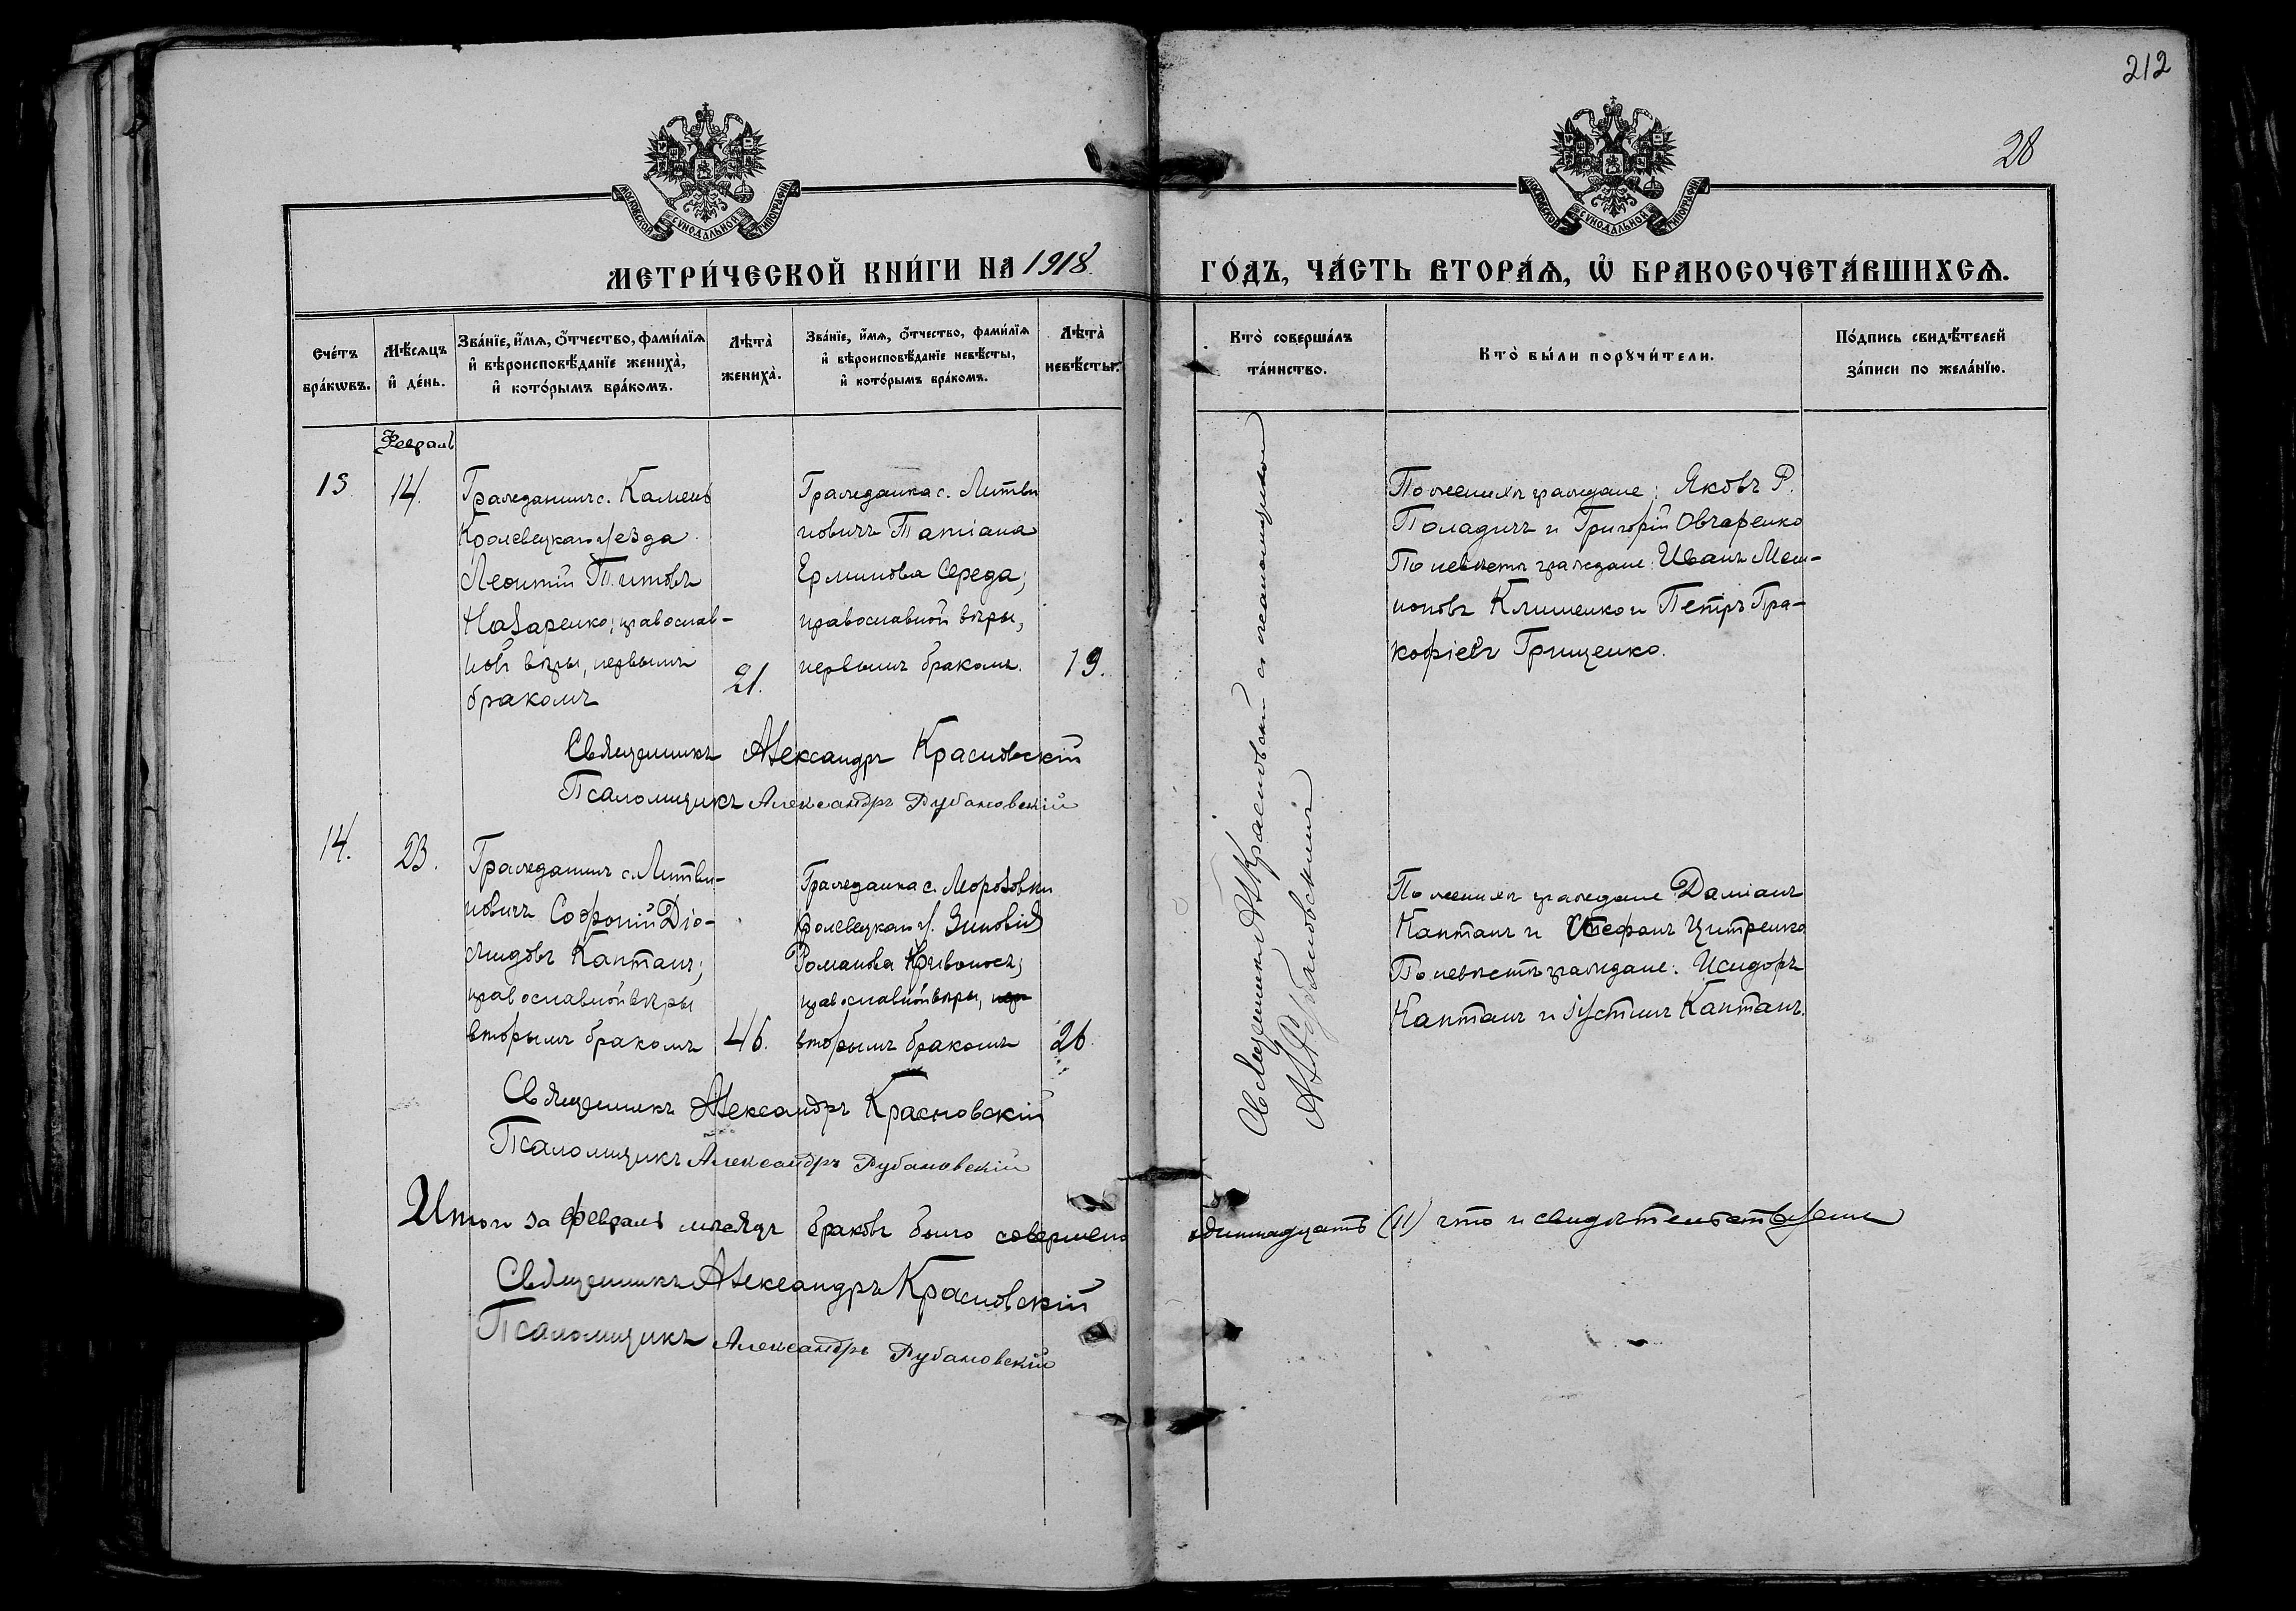 212
28
МОСКОВСКОЙ СѴНОДАЛЬНОЙ ТИПОГРАФІИ
МОСКОВСКОЙ СѴНОДАЛЬНОЙ ТИПОГРАФІИ
МЕТРИ́ЧЕСКОЙ КНИ́ГИ НА 1918.
ГО́ДЪ, ЧА́СТЬ ВТОРА́Ѧ, Ѡ҆ БРАКОСОЧЕТА́ВШИХСѦ.
Сче́тъ
бра́кѡвъ.
Мѣ́сяцъ
и҆ де́нь.
Зва́нїе, и҆́мя, ѻ҆́тчество, фами́лїя
и҆ вѣроисповѣ́данїе жениха̀,
и҆ кото́рымъ бра́комъ.
Лѣта̀
жениха̀.
Зва́нїе, и҆́мя, ѻ҆́тчество, фами́лїя
и҆ вѣроисповѣ́данїе невѣ́сты,
и҆ кото́рымъ бра́комъ.
Лѣта̀
невѣ́сты.
Кто̀ соверша́лъ
та́инство.
Кто̀ бы́ли порꙋчи́тели.
По́дпись свидѣ́телей
за́писи по жела́нїю.
Февраль
13.
14.
Гражданинъ с. Камень
Кролевецкаго уезда
Леонтій Титовъ
Назаренко; православ-
ной вѣры, первымъ
бракомъ
21.
Гражданка с. Литви
новичъ Татіана
Ермилова Середа;
православной вѣры,
первымъ бракомъ.
19.
По женихѣ граждане: Яковъ Р.
Поладичъ и Григорій Овчаренко
По невѣстѣ граждане: Иванъ
Клименко и Петръ Про-
кофіевъ Грищенко.
Священникъ Александръ Красновскій
Псаломщикъ Александръ Рубановскій
14.
23.
Гражданинъ с. Литви-
новичъ Софроній Діо-
мидовъ Каптанъ;
православной вѣры
вторымъ бракомъ
46.
Гражданка с. Морозовки
Кролевецкаго у. Зиновія
Романова Кривоносъ;
православной вѣры, пер
вторымъ бракомъ
26.
По женихѣ граждане Даміанъ
Каптанъ и Стефанъ
По невѣстѣ граждане: Исидоръ
Каптанъ и Іустинъ Каптанъ.
Священникъ А. Красновскій съ псаломщикомъ
А. Рубановскимъ
Священникъ Александръ Красновскій
Псаломщикъ Александръ Рубановскій
Итого за Февраль мѣсяцъ браковъ было совершено одиннадцать (11) что и свидѣтельствуемъ
Священникъ Александръ Красновскій
Псаломщикъ Александръ Рубановскій